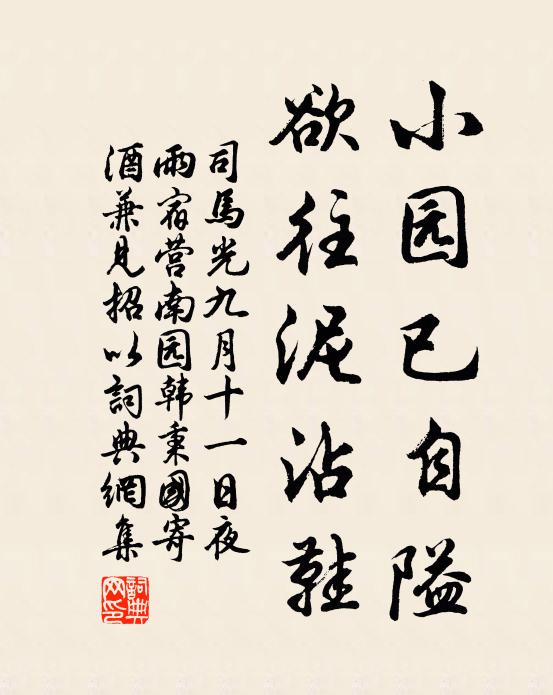 小园已自隘
欲往泥沾鞋
司馬光九月十一日夜
雨宿营南园韩秉國寄
酒兼见招以詞典網集
詞典
网印